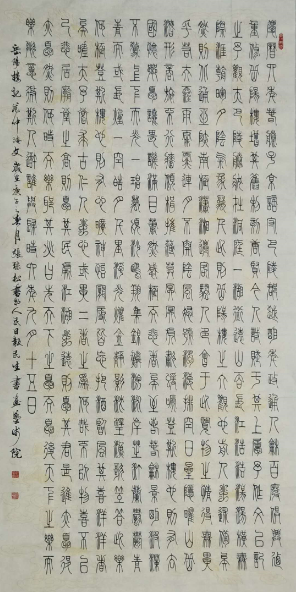 慶曆四年春滕子京謫守巴陵郡越明年政通人和百廢具興乃
重修岳陽樓增其舊制刻唐賢今人詩賦于其上屬予作文以記
之予觀夫巴陵勝狀在洞庭一湖銜遠山吞長江浩浩湯湯橫無
際涯朝暉夕陰氣象萬千此則岳陽樓之大觀也前人之述備矣
然則北通巫峽南極瀟湘遷客騷人多會于此覽物之情得無異
乎若夫霪雨霏霏連月不開陰風怒號濁浪排空日星隱曜山岳
潛形商旅不行檣傾楫摧薄暮冥冥虎嘯猿啼登斯樓也則有去
國懷鄉憂讒畏譏滿目蕭然感極而悲者矣至若春和景明波瀾
不驚上下天光一碧萬頃沙鷗翔集錦鱗游泳岸芷汀蘭郁郁青
青而或長煙一空皓月千里浮光躍金靜影沉璧漁歌互答此樂
何極登斯樓也則有心曠神怡寵辱偕忘把酒臨風其喜洋洋者
矣嗟夫予嘗求古仁人之心或異二者之為何哉不以物喜不以
己悲居廟堂之高則憂其民處江湖之遠則憂其君是進亦憂退
亦憂然則何時而樂耶其必曰先天下之憂而憂後天下之樂而
樂乎噫微斯人吾誰與歸時六年九月十五日
岳陽樓記范仲淹文歲在庚子年月張振松書於人民日報民生書畫藝術院